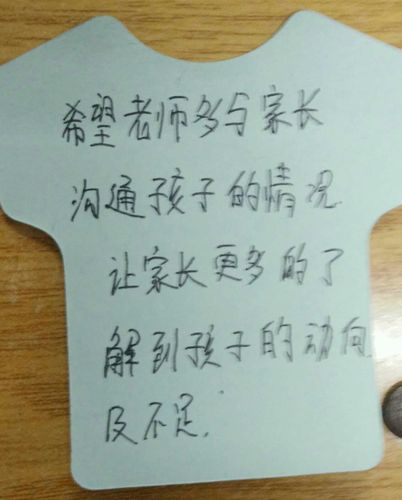 希望老师多与家长
沟通孩子的情况
让家长更多的了
解到孩子的动向
及不足.